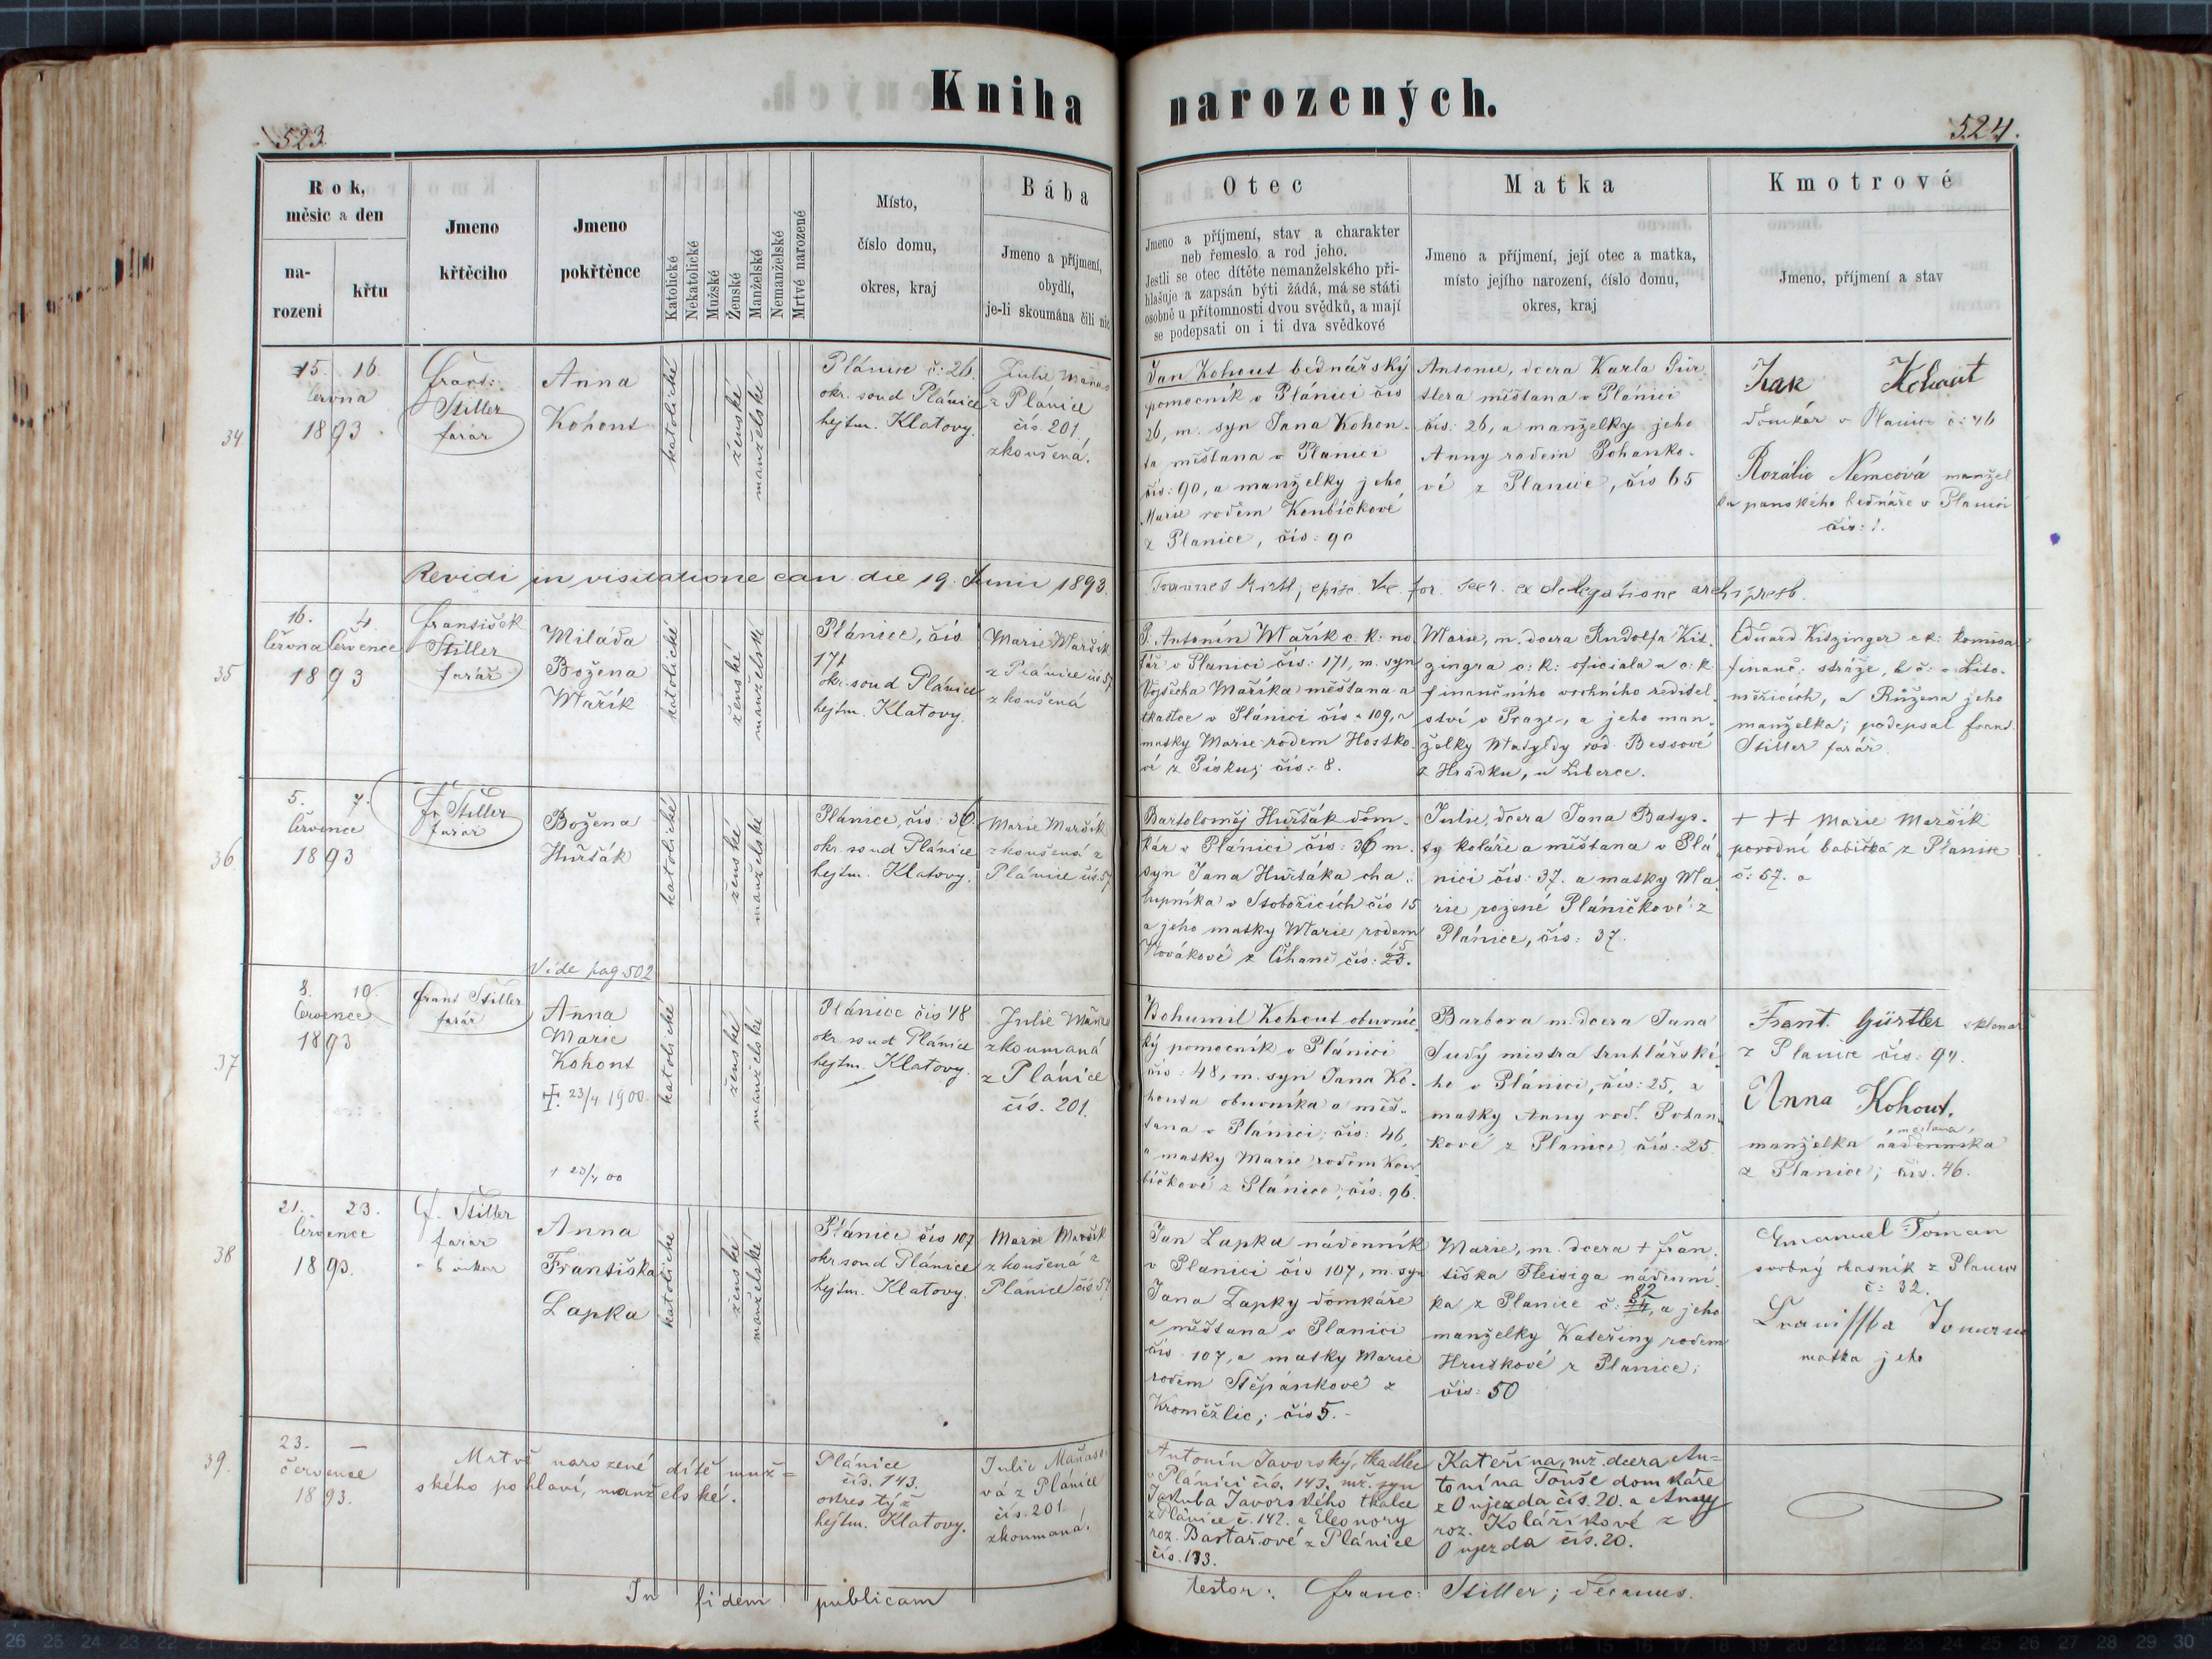 Kniha narozených.
523.
524.
Rok,
měsíc a den
na-
rození
křtu
Jmeno
křtěcího
Jmeno
pokřtěnce
Katolické
Nekatolické
Mužské
Ženské
Manželské
Nemanželské
Mrtvé narozené
Místo,
číslo domu,
okres, kraj
Bába
Jmeno a příjmení,
obydlí,
je-li skoumána čili nic
Otec
Jmeno a příjmení, stav a charakter
neb řemeslo a rod jeho.
Jestli se otec dítěte nemanželského při-
hlašuje a zapsán býti žádá, má se státi
osobně u přítomnosti dvou svědků, a mají
se podepsati on i ti dva svědkové
Matka
Jmeno a příjmení, její otec a matka,
místo jejího narození, číslo domu,
okres, kraj
Kmotrové
Jmeno, příjmení a stav
34
15. 16.
června
1893
Frant:
Stiller
farář
Anna
Kohout
katolické
ženské
manželské
Plánice č: 26.
okr. soud Plánice
hejtm. Klatovy.
Julie Maňas
z Plánice
čís. 201.
zkoušená.
Jan Kohout bednářský
pomocník v Plánici čís
26, m. syn Jana Kohou-
ta měšťana v Plánici
čís: 90, a manželky jeho
Marie rodem Koubíčkové
z Plánice, čís: 90
Antonie, dcera Karla Gür
tlera měšťana v Plánici
čís: 26, a manželky jeho
Anny rodem Pohanko-
vé z Plánice, čís 65
Kohout
domkár v Planici č: 46
Rozálie Nemcová manžel
ka panského bednáře v Planici
čís: 1.
Revidi in visitatione can. die 19. Junii 1893.
Joannes episc. Vic. for. secr. ex delegatione archipresb.
35
16. 4.
června července
1893
František
Stiller
farář
Miláda
Božena
Mařík
katolické
ženské
manželské
Plánice, čís
171
okr. soud Plánice
hejtm. Klatovy.
Marie Maršík
z Plánice čís 57
zkoušená
P. Antonín Mařík c: k: no
tář v Planici čís: 171, m. syn
Vojtěcha Maříka měšťana a
tkalce v Plánici čís: 109, a
matky Marie rodem Hostko-
vé z Písku, čís: 8.
Marie, m. dcera Rudolfa Kit-
zingra c: k: oficiala u c: k:
finančního vrchního ředitel-
ství v Praze, a jeho man-
želky Matyldy rod. Bessové
z Hrádku, u Liberce.
Eduard Kitzinger c k: komisar
financ: stráže, b č: v Lito-
měřicích, a Růžena jeho
manželka; podepsal Frant
Stiller farář.
36
5. 7.
července
1893
Fr. Stiller
farář
Božena
Huršák
katolické
ženské
manželské
Plánice, čís: 36.
okr. soud Plánice
hejtm. Klatovy.
Marie Maršík
zkoušená z
Plánice čís. 57
Bartoloměj Huršák dom-
kář v Plánici čís: 36 m.
syn Jana Huršáka cha-
lupníka v Stobořicích čís 15
a jeho matky Marie rodem
Novákové z Číhaně čís: 23.
Julie, dcera Jana Batys-
ty koláře a měšťana v Plá
nici čís: 37. a matky Ma
rie rozené Pláničkové z
Plánice, čís: 37.
+++ Marie Maršík
porodní babička z Planice
č: 57.
Vide pag. 502
37
8. 10.
července
1893
Frant Stiller
farář
Anna
Marie
Kohout
23/4 1900.
+ 23/4 00
katolické
ženské
manželské
Plánice čís 48
okr. soud Plánice
hejtm. Klatovy.
Julie Maňas
zkoumaná
z Plánice
čís. 201.
Bohumil Kohout obuvnic
ký pomocník v Plánici
čís: 48, m. syn Jana Ko-
houta obuvníka a měš-
ťana v Plánici, čís: 46,
a matky Marie rodem Kou
bíčkové z Plánice, čís: 96.
Barbora m. dcera Jana
Sudy mistra truhlářské-
ho v Plánici, čís: 25, a
matky Anny rod. Pohan
kové z Planice čís: 25.
Frant. Gürtler sklenar
z Planice čís: 94.
Anna Kohout,
měšťana
manželka nádenníka
z Plánice; čís. 46.
38
21. 23.
července
1893.
F. Stiller
farář
Anna
Františka
Lapka
katolické
ženské
manželské
Plánice čís 107
okr soud Plánice
hejtm. Klatovy.
Marie Maršík
zkoušená z
Plánice čís 57
Jan Lapka nádenník
v Planici čís 107, m. syn
Jana Lapky domkáře
a měšťana v Planici
čís 107, a matky Marie
rodem Štěpánkové z
Kroměžlic; čís 5.
Marie, m. dcera + Fran-
tiška Fleisiga nádenní-
82
ka z Planice č: , a jeho
manželky Kateřiny rodem
Hruškové z Planice;
čís: 50
Emanuel Toman
svobný z Planice
č: 32.
matka jeho
39.
23. —
července
1893.
Mrtvě narozené dítě muž=
ského pohlaví, manželské.
Plánice
čís. 143.
okres týž
hejtm. Klatovy.
Julie Maňaso-
vá z Plánice
čís. 201.
zkoumaná.
Antonín Javorský, tkadlec
v Plánici čís. 143. mž. syn
Jakuba Javorského tkalce
z Plánice č. 142. a Eleonory
roz. Bartařové z Plánice
čís. 133.
Kateřina, mž. dcera An=
tonína Touše domkáře
z Oujezda čís. 20. a Anny
roz. Koláříkové z
Oujezda čís. 20.
In fidem publicam
testor: Franc: Stiller; decanus.